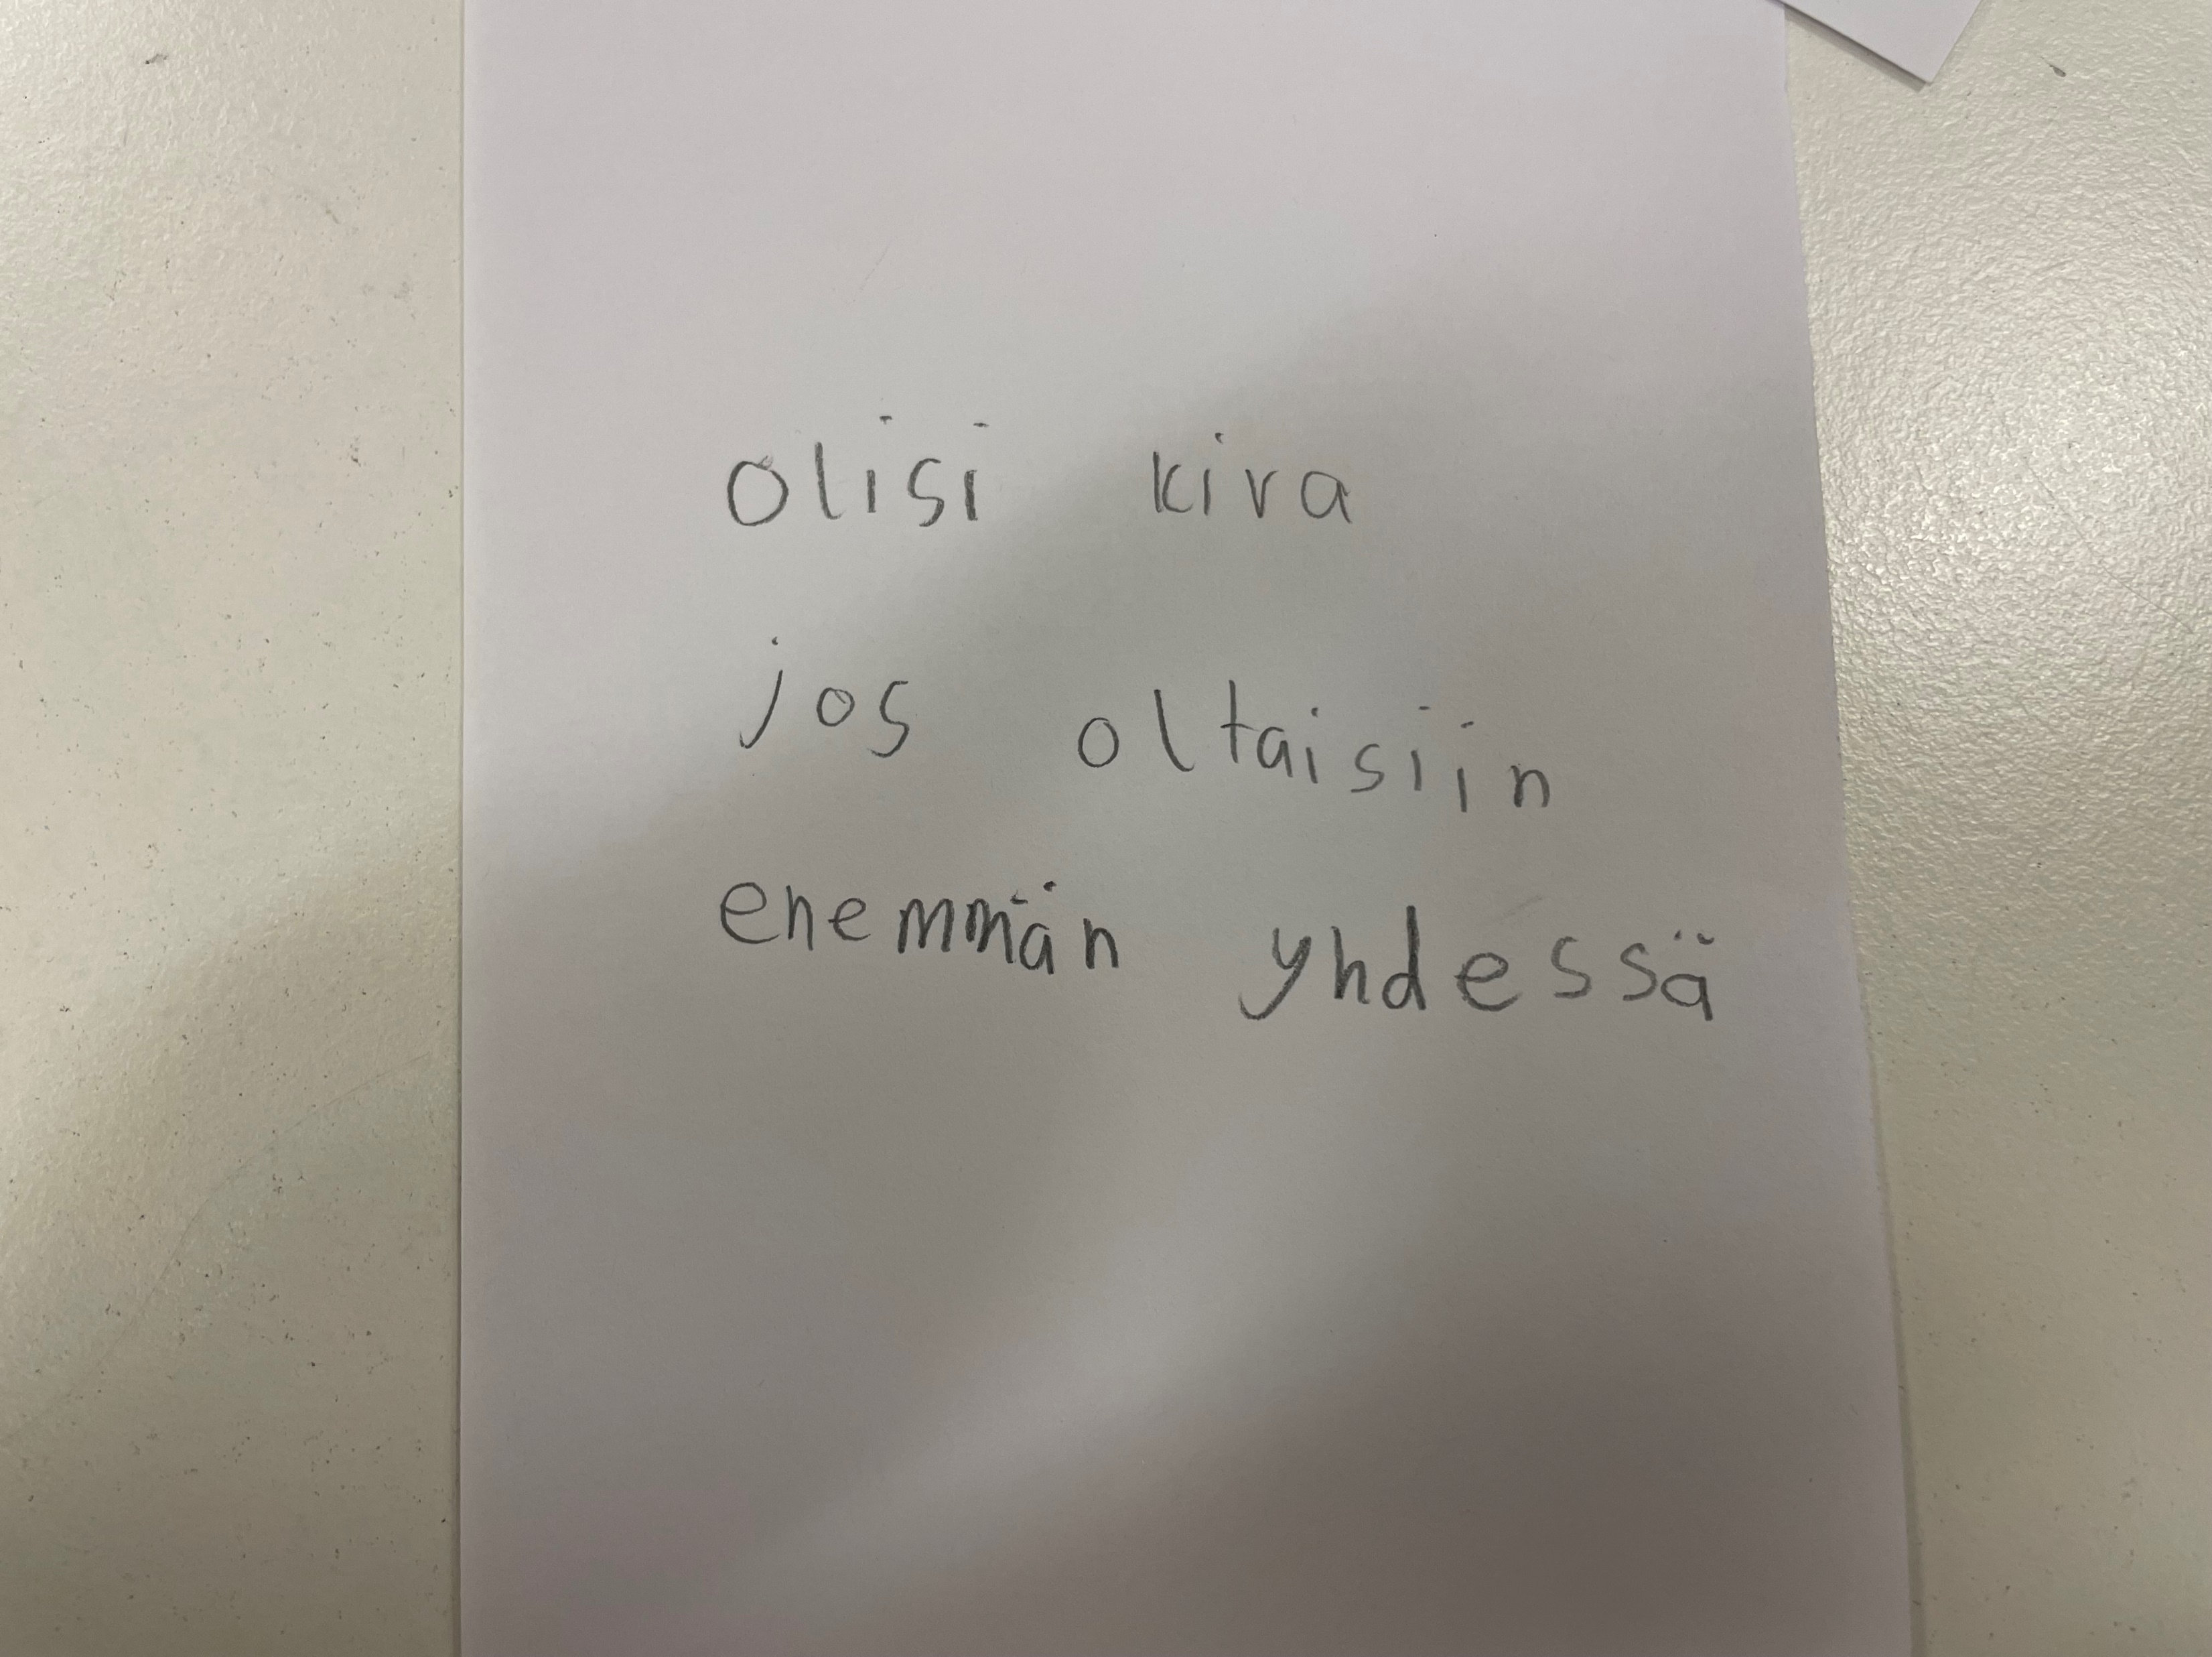 olisi kiva
jos oltaisiin
enemmän yhdessä